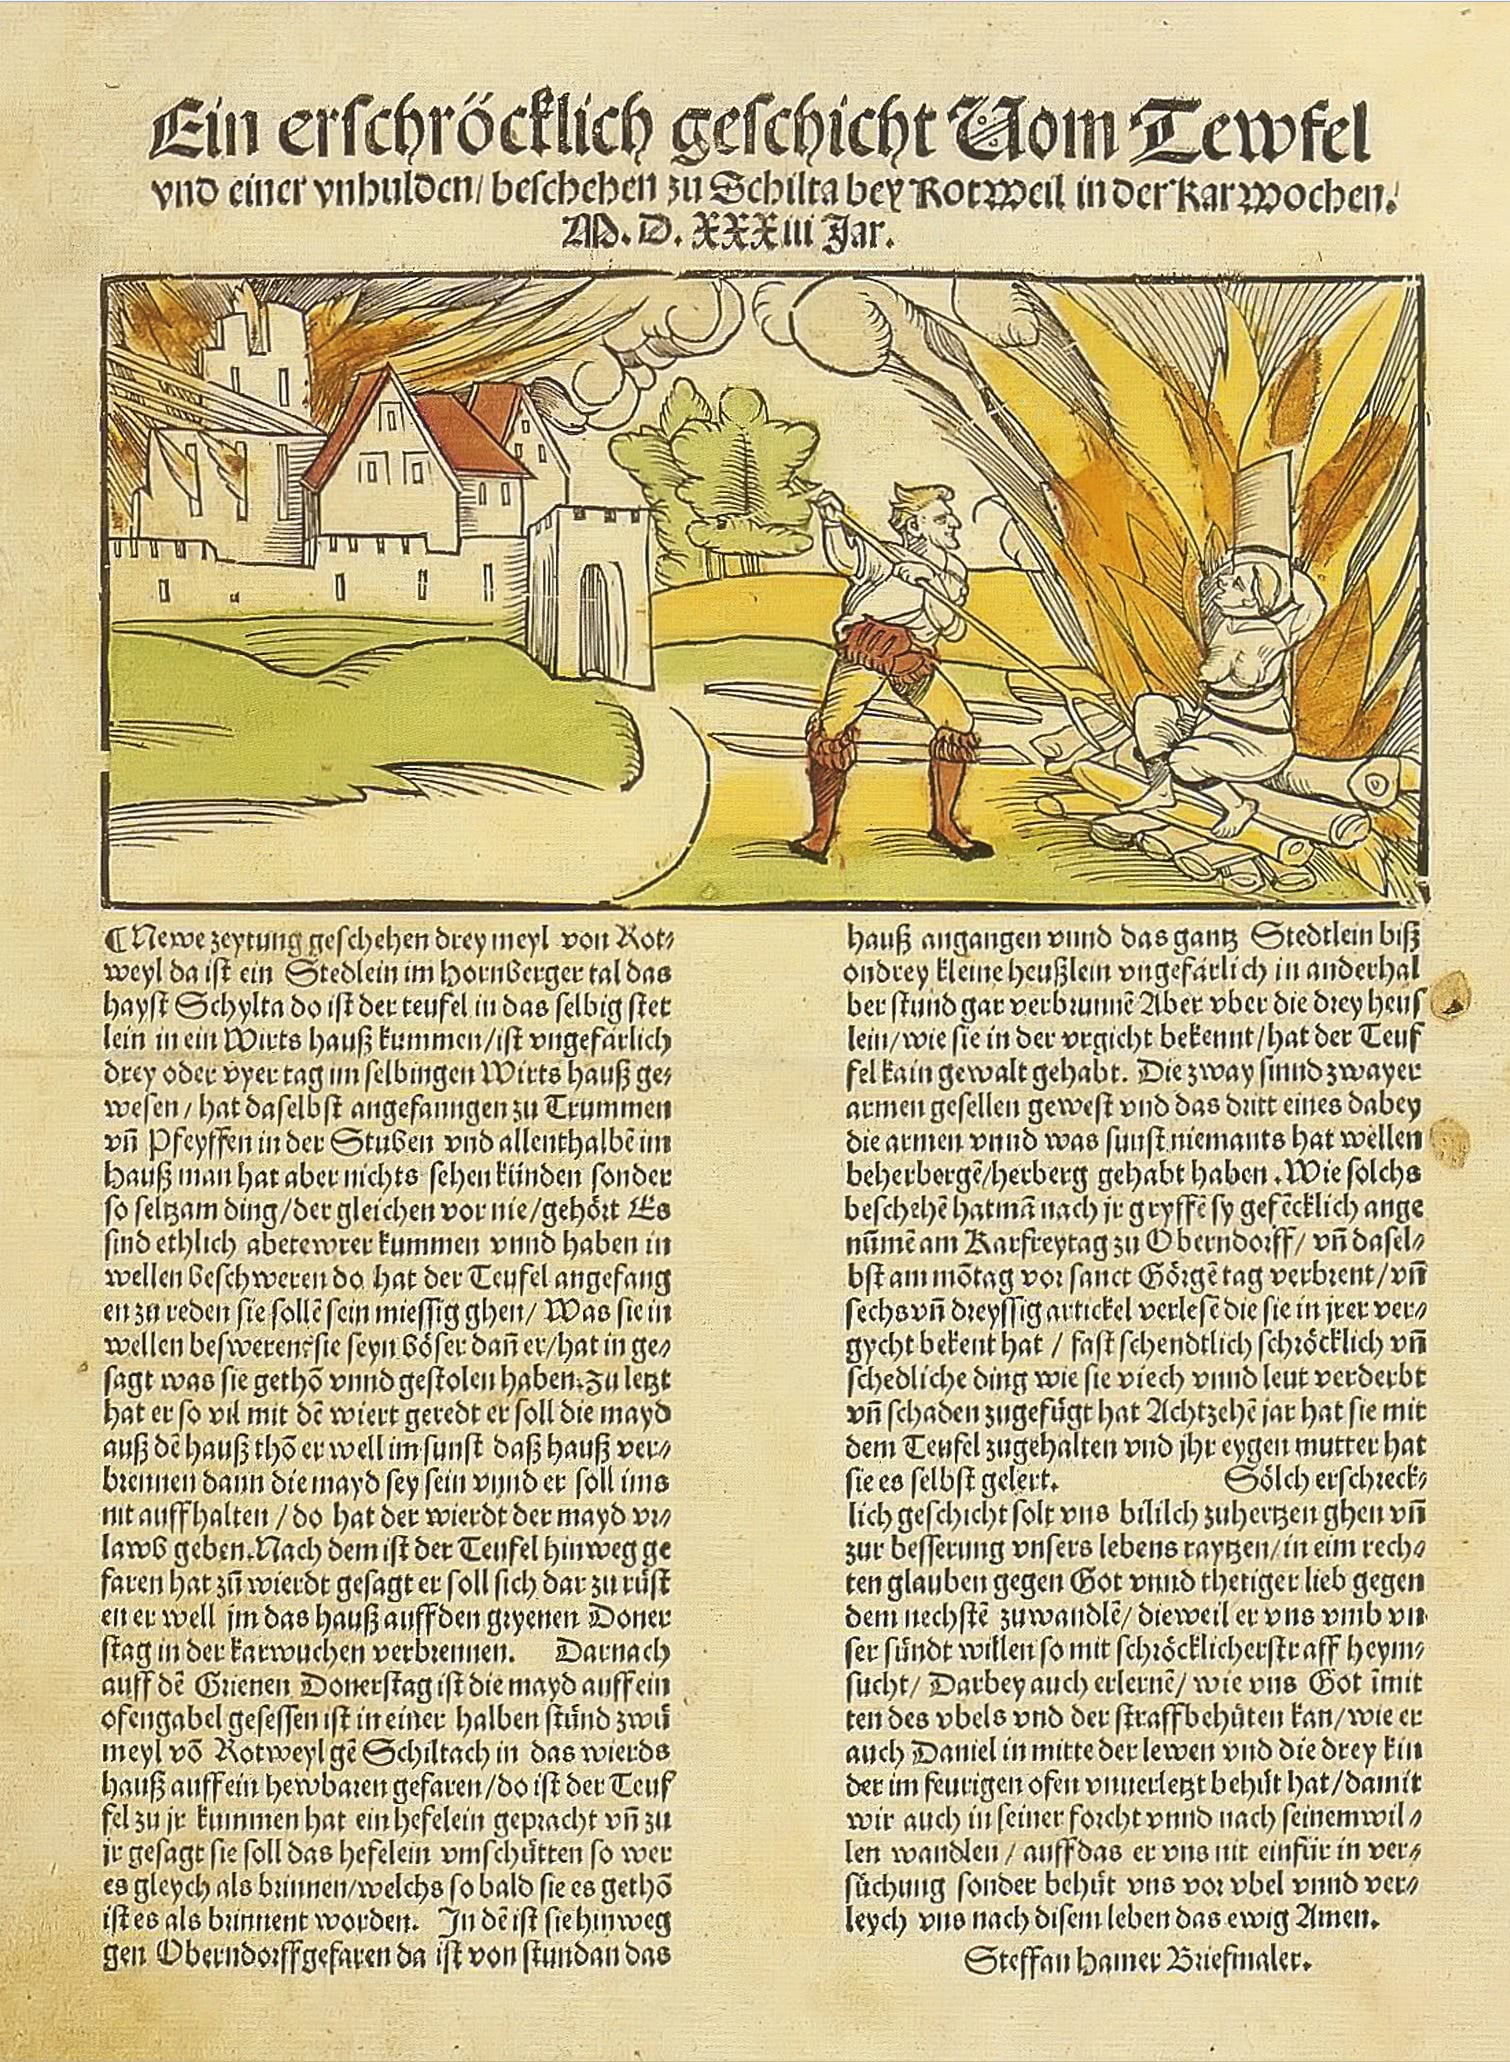 Ein erschröcklich geschicht Vom Tewfel
vnd einer vnhulden/ beschehen zu Schilta bey Rotweil in der Karwochen.
M. D. XXXiii Jar.
Newe zeytung geschehen drey meyl von Rot-
weyl da ist ein Stedlein im Hornberger tal das
hayst Schylta do ist der teufel in das selbig stet
lein in ein Wirts hauß kummen/ist vngefärlich
drey oder vyer tag im selbingen Wirts hauß ge-
wesen/ hat daselbst angefanngen zu Trummen
vñ Pfeyffen in der Stuben vnd allenthalbē im
Hauß man hat aber nichts sehen künden sonder
so seltzam ding/der gleichen vor nie/gehört Es
sind ethlich abetewrer kummen vnnd haben in
wellen beschweren do hat der Teufel angefang
en zu reden sie sollē sein miessig ghen/ Was sie in
wellen besweren sie seyn böser dañ er/hat in ge-
sagt was sie gethō vnnd gestolen haben. Zu letzt
hat er so vil mit dē wiert geredt er soll die mayd
auß dē hauß thō er well im sunst daß hauß ver-
brennen dann die mayd sey sein vnnd er soll ims
nit auffhalten/do hat der wierdt der mayd vr-
lawb geben. Nach dem ist der Teufel hinweg ge
faren hat zū wierdt gesagt er soll sich dar zu rüst
en er well jm das hauß auff den gryenen Doner
stag in der karwuchen verbrennen. Darnach
auff dē Grienen Donerstag ist die mayd auff ein
ofengabel gesessen ist in einer halben stünd zwü
meyl vō Rotweyl gē Schiltach in das wierds
hauß auff ein hewbaren gefaren/do ist der Teuf
fel zu jr kummen hat ein hefelein gepracht vñ zu
jr gesagt sie soll das hefelein vmschütten so wer
es gleych als brinnen/welchs so bald sie es gethō
ist es als brinnent worden. In dē ist sie hinweg
gen Oberndorff gefaren da ist von stundan das
hauß angangen vnnd das gantz Stedtlein biß
on drey kleine heußlein vngefärlich in anderhal
ber stund gar verbrunnē Aber vber die drey heus
lein/wie sie in der vrgicht bekennt/hat der Teuf
fel kain gewalt gehabt. Die zway sinnd zwayer
armen gesellen gewest vnd das dritt eines dabey
die armen vnnd was sunst niemants hat wellen
beherbergē/herberg gehabt haben. Wie solchs
beschehē hat mā nach jr gryffē sy gefēcklich ange
nūmē am Karfreytag zu Oberndorff/ vñ dasel-
bst am mōtag vor sanct Görgē tag verbrent/vñ
sechs vñ dreyssig artickel verlesē die sie in jrer ver-
gycht bekent hat/ fast schendtlich schröcklich vñ
schedliche ding wie sie viech vnnd leut verderbt
vñ schaden zugefügt hat Achtzehē jar hat sie mit
dem Teufel zugehalten vnd jhr eygen mutter hat
sie es selbst gelert. Sölch erschreck-
lich geschicht solt vns bililch zuhertzen ghen vñ
zur besserung vnsers lebens raytzen/in eim rech-
ten glauben gegen Got vnnd thetiger lieb gegen
dem nechstē zuwandlē/ dieweil er vns vmb vn
ser sündt willen so mit schröcklicher straff heym-
sucht/ Darbey auch erlernē/ wie vns Got īmit
ten des vbels vnd der straff behüten kan/wie er
auch Daniel in mitte der lewen vnd die drey kin
der im feurigen ofen vnuerletzt behüt hat/damit
wir auch in seiner forcht vnnd nach seinem wil-
len wandlen/ auff das er vns nit einfür in ver-
süchung sonder behüt vns vor vbel vnnd ver-
leych vns nach disem leben das ewig Amen.
Steffan Hamer Briefmaler.